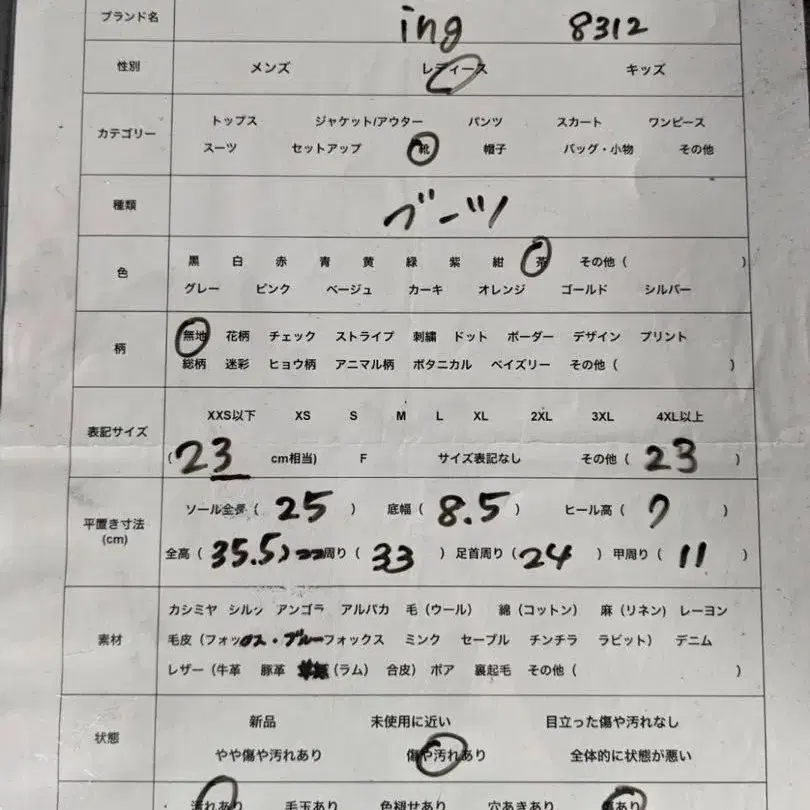 ブランド名 ing 8312
性別 メンズ レディース キッズ
カテゴリー トップス ジャケット/アウター パンツ スカート ワンピース
スーツ セットアップ 靴 帽子 バッグ・小物 その他
種類 ブーツ
色 黒 白 赤 青 黄 緑 紫 紺 茶 その他 ( )
グレー ピンク ベージュ カーキ オレンジ ゴールド シルバー
柄 無地 花柄 チェック ストライプ 刺繍 ドット ボーダー デザイン プリント
総柄 迷彩 ヒョウ柄 アニマル柄 ボタニカル ペイズリー その他 ( )
表記サイズ XXS以下 XS S M L XL 2XL 3XL 4XL以上
(23 cm相当) F サイズ表記なし その他 ( 23 )
平置き寸法 (cm) ソール全長 ( 25 ) 底幅 ( 8.5 ) ヒール高 ( 7 )
全高 ( 35.5 ) 周り ( 33 ) 足首周り ( 24 ) 甲周り ( 11 )
素材 カシミヤ シルク アンゴラ アルパカ 毛 (ウール) 綿 (コットン) 麻 (リネン) レーヨン
毛皮 (フォックス・ブルーフォックス ミンク セーブル チンチラ ラビット) デニム
レザー (牛革 豚革 (ラム) 合皮) ボア 裏起毛 その他 ( )
状態 新品 未使用に近い 目立った傷や汚れなし
やや傷や汚れあり 傷や汚れあり 全体的に状態が悪い
汚れあり 毛玉あり 色褪せあり 穴あきあり 傷あり